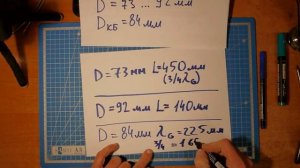 D = 73 ... 92 мм
Dкб = 84 мм
D = 73 мм L = 450 мм
(3/4 λG)
D = 92 мм L = 140 мм
D = 84 мм λG = 225 мм
3/4 = 16